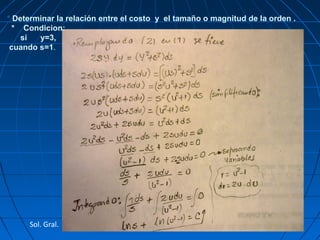 Determinar la relación entre el costo y el tamaño o magnitud de la orden .
* Condicion:
si y=3,
cuando s=1.
Remplazando (2) en (1) se tiene
2sy.dy = (y²+s²)ds
2s(us)·(uds+sdu) = [(us)²+s²]ds
2us²(uds+sdu) = (s²u²+s²)ds
2us²(uds+sdu) = s²(u²+1)ds (simplificando):
2u(uds+sdu) = (u²+1)ds
2u²ds + 2sudu = u²ds+ds
2u²ds - u²ds - ds + 2sudu = 0
u²ds - ds + 2sudu = 0
(u²-1)ds + 2sudu = 0 → Separando
Variables
ds/s + 2udu/(u²-1) = 0
r = u²-1
dr = 2u·du
Integrando: ∫ds/s + ∫2udu/(u²-1) = ∫0
Sol. Gral.
lns + ln(u²-1) = C